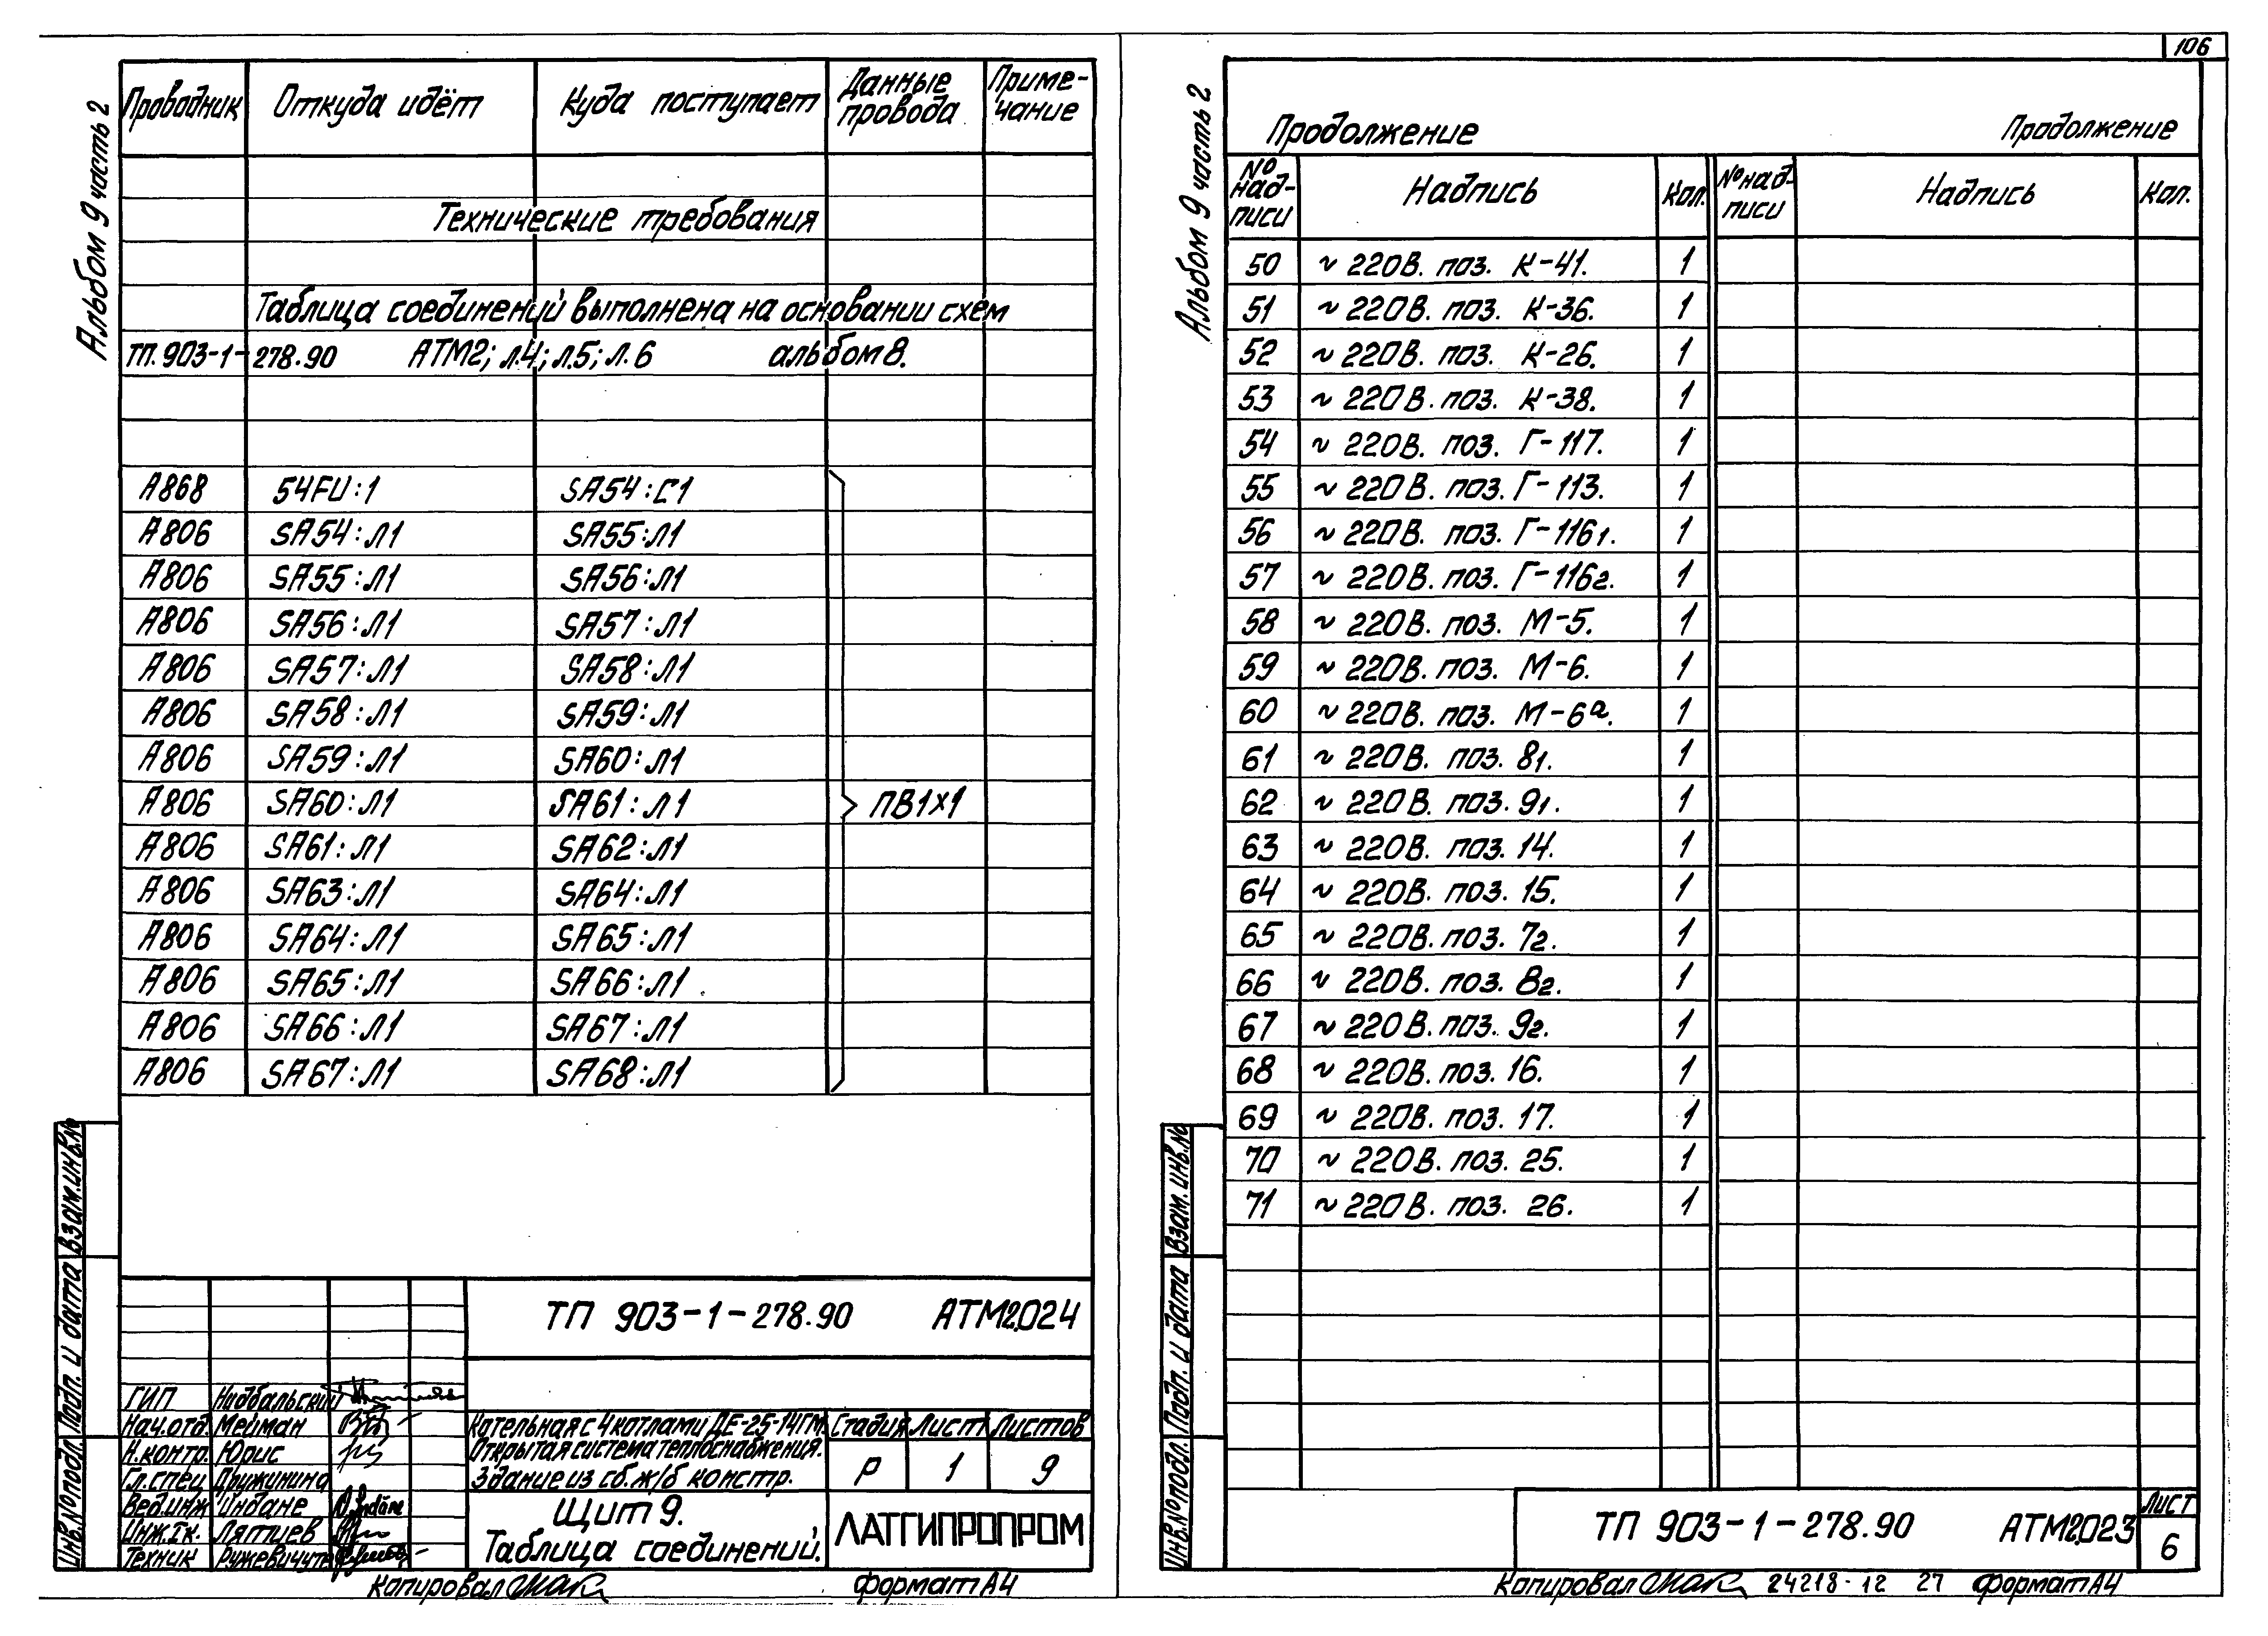 Альбом 9 часть 2
Проводник Откуда идёт Куда поступает Данные провода Примечание
Технические требования
Таблица соединений выполнена на основании схем
ТП. 903-1-278.90 АТМ2; л.4; л.5; л.6 альбом 8.
А868 54FU:1 SA54:С1
А806 SA54:Л1 SA55:Л1
А806 SA55:Л1 SA56:Л1
А806 SA56:Л1 SA57:Л1
А806 SA57:Л1 SA58:Л1
А806 SA58:Л1 SA59:Л1
А806 SA59:Л1 SA60:Л1
А806 SA60:Л1 SA61:Л1 ПВ1х1
А806 SA61:Л1 SA62:Л1
А806 SA63:Л1 SA64:Л1
А806 SA64:Л1 SA65:Л1
А806 SA65:Л1 SA66:Л1
А806 SA66:Л1 SA67:Л1
А806 SA67:Л1 SA68:Л1
Взам.инв.№
Подп. и дата
Инв.№подл.
ТП 903-1-278.90 АТМ2.024
ГИП Надбальский
Нач.отд. Мейман
Н.контр. Юрис
Гл.спец Дружинина
Вед.инж Индане
Инж.Iк. Лятиев
Техник Ружевичуте
Котельная с 4 котлами ДЕ-25-14ГМ.
Открытая система теплоснабжения.
Здание из сб.ж/б констр.
Стадия Лист Листов
Р 1 9
Щит 9.
Таблица соединений.
ЛАТГИПРОПРОМ
Копировал Формат А4
106
Альбом 9 часть 2
Продолжение Продолжение
№ надписи Надпись Кол. № надписи Надпись Кол.
50 ~ 220В. поз. К-41. 1
51 ~ 220В. поз. К-36. 1
52 ~ 220В. поз. К-26. 1
53 ~ 220В. поз. К-38. 1
54 ~ 220В. поз. Г-117. 1
55 ~ 220В. поз. Г-113. 1
56 ~ 220В. поз. Г-116г. 1
57 ~ 220В. поз. Г-116г. 1
58 ~ 220В. поз. М-5. 1
59 ~ 220В. поз. М-6. 1
60 ~ 220В. поз. М-6а. 1
61 ~ 220В. поз. 81. 1
62 ~ 220В. поз. 91. 1
63 ~ 220В. поз. 14. 1
64 ~ 220В. поз. 15. 1
65 ~ 220В. поз. 72. 1
66 ~ 220В. поз. 82. 1
67 ~ 220В. поз. 92. 1
68 ~ 220В. поз. 16. 1
69 ~ 220В. поз. 17. 1
70 ~ 220В. поз. 25. 1
71 ~ 220В. поз. 26. 1
Взам.инв.№
Подп. и дата
Инв.№подл.
ТП 903-1-278.90 АТМ2.023
Лист
6
Копировал 24218-12 27 Формат А4